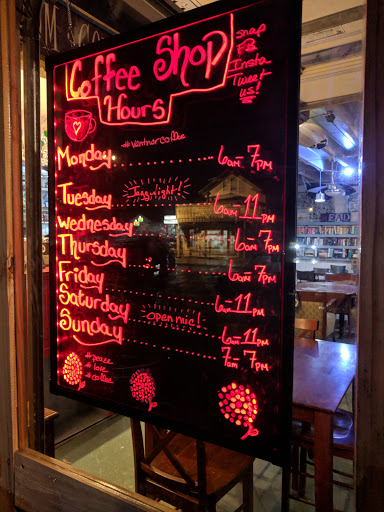 Coffee Shop
Hours
snap
FB
Insta
Tweet
us!
#ventnorcoffee
Monday 6am 7pm
Tuesday Jazz night! 6am 11pm
Wednesday 6am 7pm
Thursday 6am 7pm
Friday 6am 11pm
Saturday open mic! 6am 11pm
Sunday 7am-7pm
#peace
#love
#coffee
READ